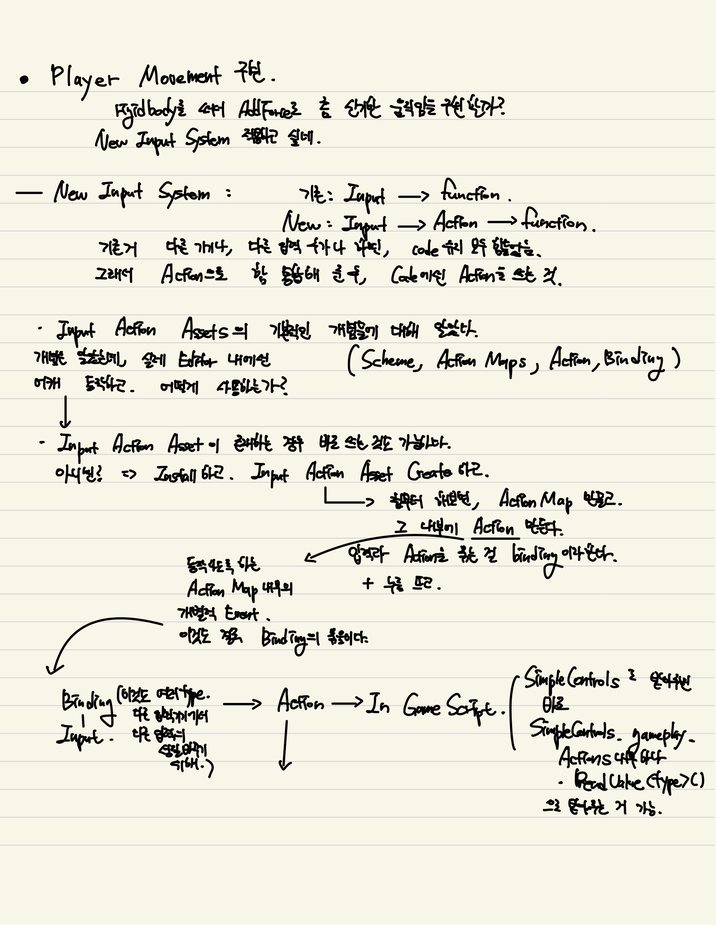 • Player Movement 구현.
Rigidbody를 써서 AddForce로 좀 신기한 움직임을 구현할까?
New Input System 적용하고 싶네.
— New Input System : 기존: Input → function.
New: Input → Action → function.
기존거 다른 기기나, 다른 입력 추가나 하면, code 수정 모두 힘들었음.
그래서 Action으로 함 통용해 준 후, Code에선 Action을 쓰는 것.
· Input Action Assets의 기본적인 개념들에 대해 알았다.
개념은 알겠는데, 실제 Editor 내에선 (Scheme, Action Maps, Action, Binding)
어캐 동작하고. 어떻게 사용하는가?
↓
· Input Action Asset이 존재하는 경우 바로 쓰는 것도 가능하다.
아니면? => Install하고. Input Action Asset Create하고.
→ 해보면, Action Map 만들고.
그 내부에 Action 만든다.
입력과 Action을 묶는 걸 binding이라 한다.
+ 누를 뜨고.
동작하도록 하는
Action Map 내부의
개별적 Event.
이것도 결국 Binding의 묶음이다.
Binding (이것도 여러 type. → Action → In Game Script. (SimpleControls로 받아주면
다른 입력기기에서 바로
Input. 다른 입력의 SimpleControls. gameplay.
Actions 내부마다
위해.)
· ReadValue<type>()
으로 받아오는 거 가능.